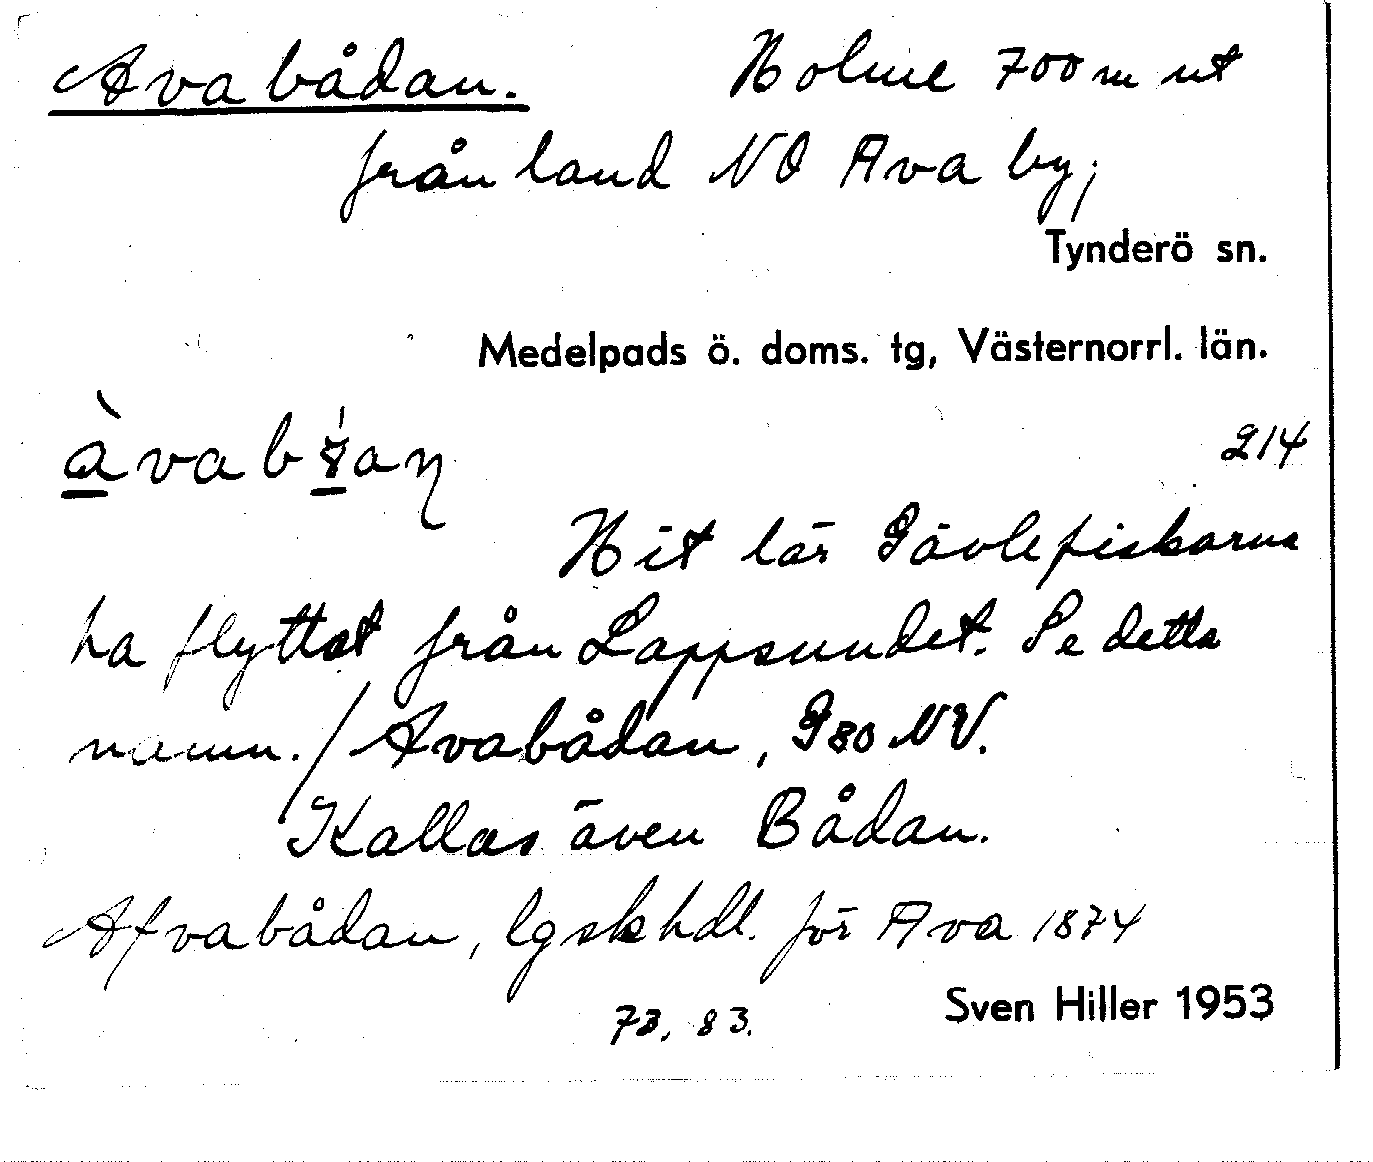 Avabådan. Holme 700 m ut
från land NO Ava by;
Tynderö sn.
Medelpads ö. doms. tg, Västernorrl. län.
214
Hit lär Gävlefiskarna
ha flyttat från Lappsundet. Se detta
namn. / Avabådan, G80 NV.
Kallas även Bådan.
Afvabådan, lgskhdl. för Ava 1874
73, 83.
Sven Hiller 1953